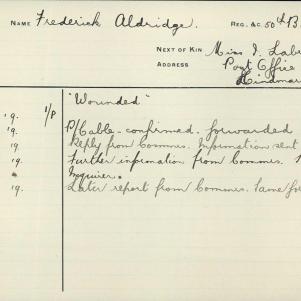 NAME Frederick Aldridge. REG. &C. 50th B
NEXT OF KIN Miss J.
ADDRESS Post Office
Hindmar
1/P "Wounded"
19. P/Cable - confirmed. forwarded
19. Reply from Commrs. Information sent
19 Further information from Commrs.
Inquirer.
19. Later report from Commrs. Same